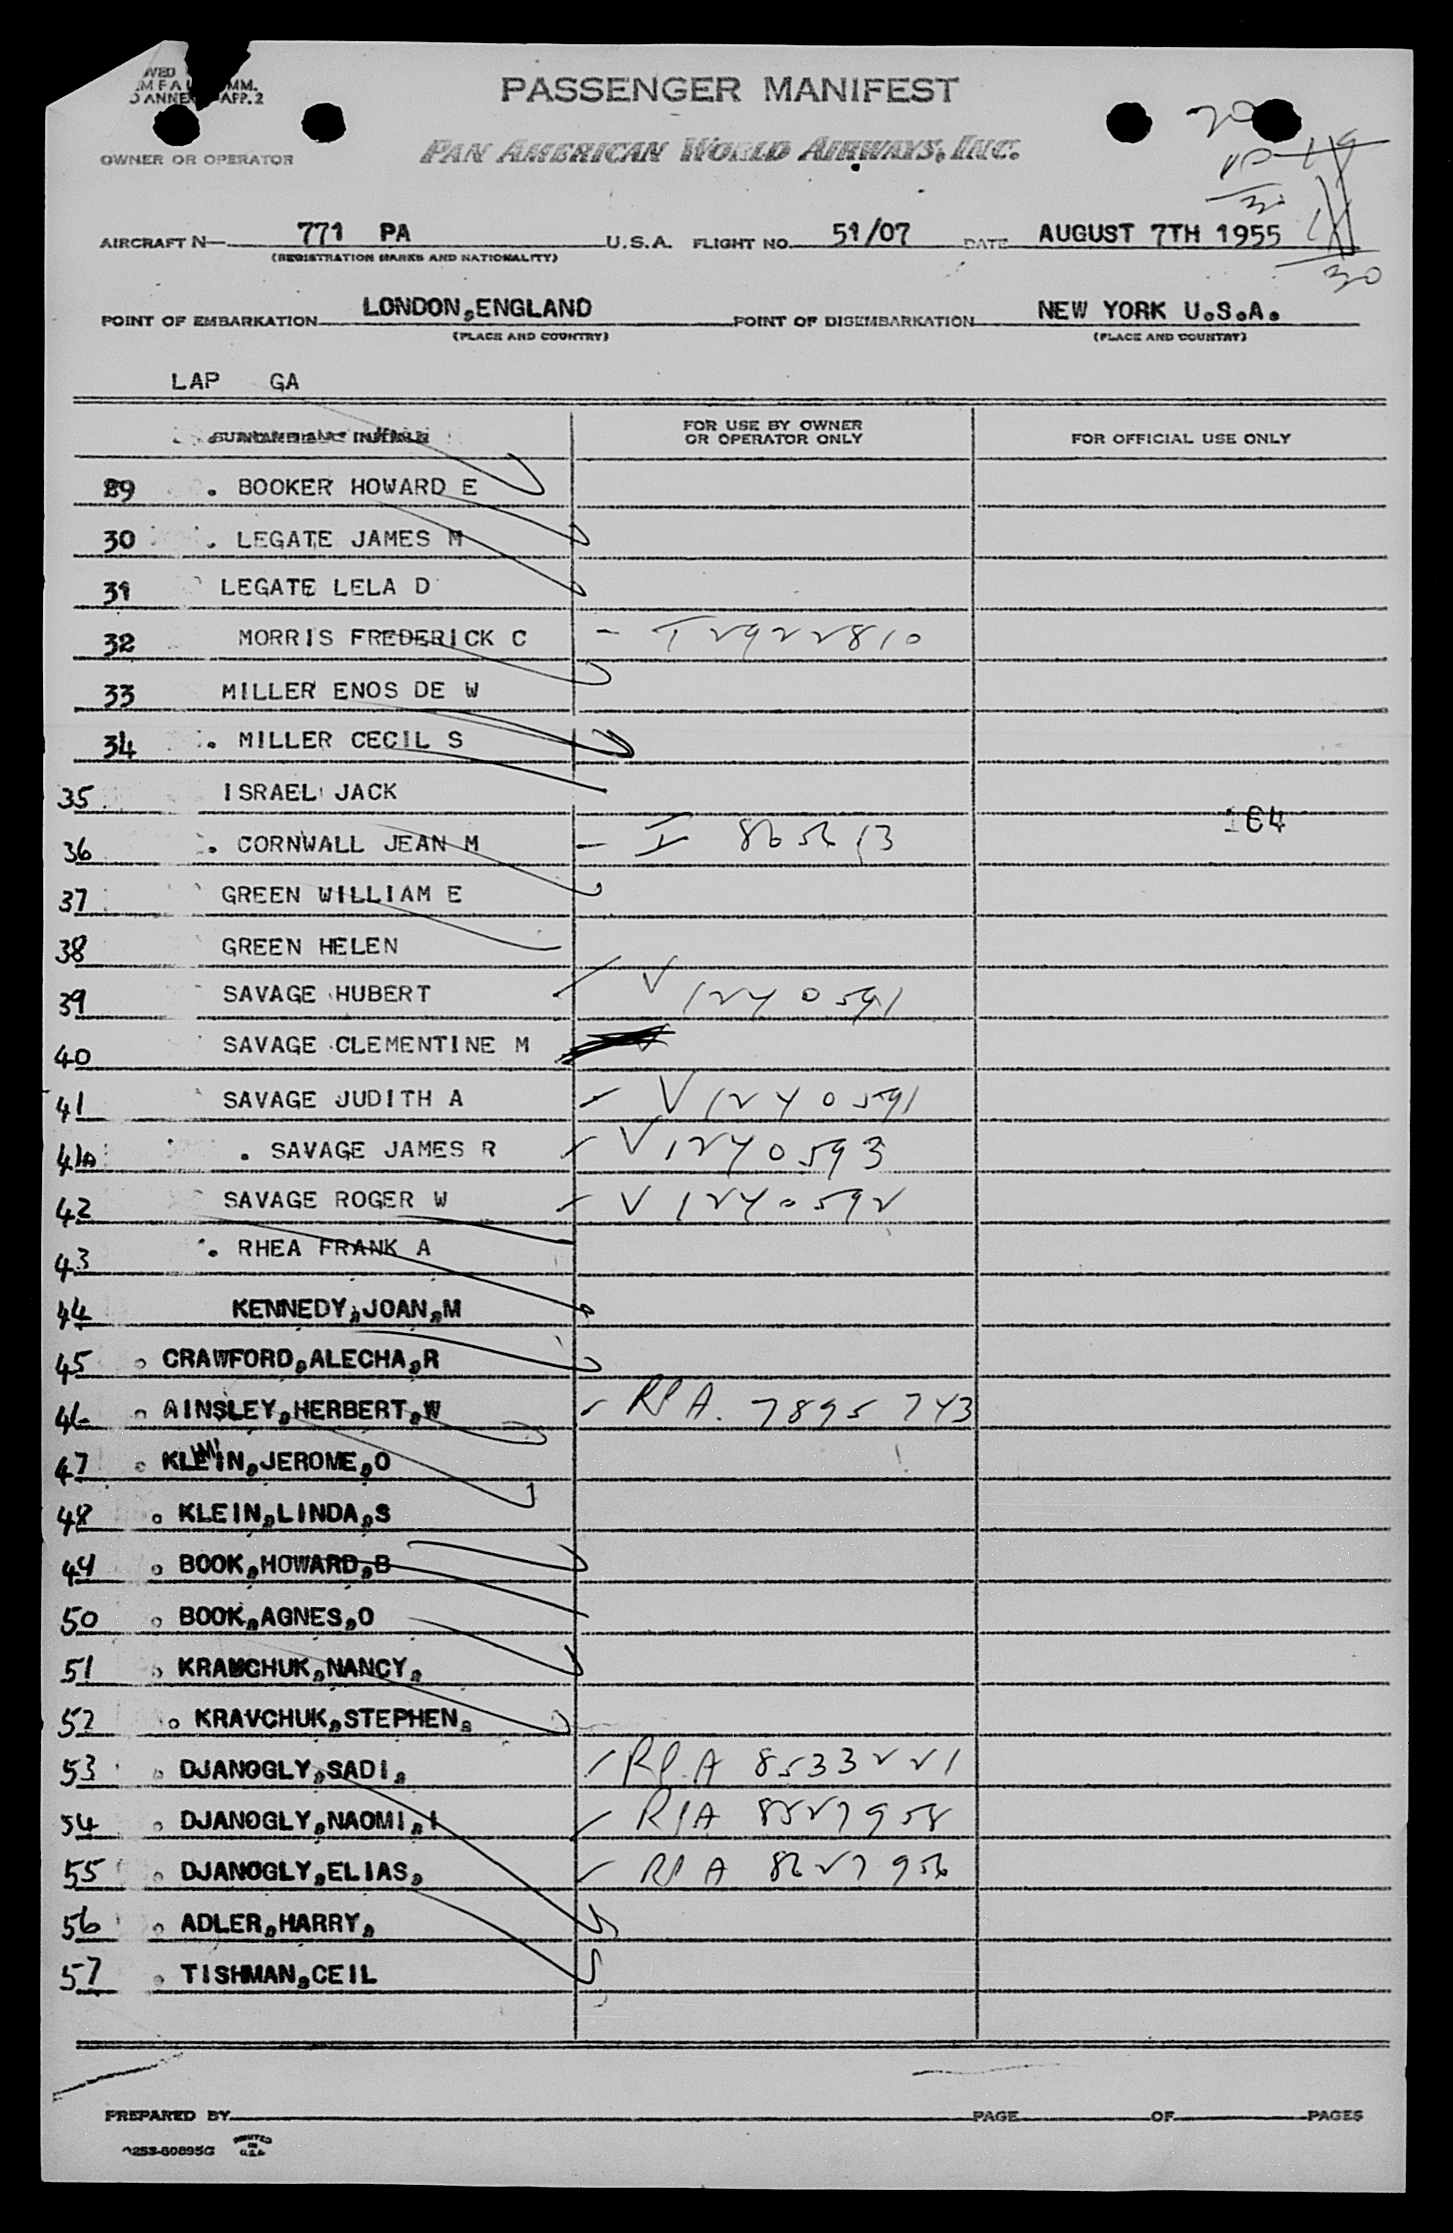 PASSENGER MANIFEST
PAN AMERICAN WORLD AIRWAYS, INC.
OWNER OR OPERATOR
20
10
30
30
AIRCRAFT N— 771 PA U.S.A. FLIGHT NO. 51/07 DATE AUGUST 7TH 1955
(REGISTRATION MARKS AND NATIONALITY)
POINT OF EMBARKATION LONDON,ENGLAND POINT OF DISEMBARKATION NEW YORK U.S.A.
(PLACE AND COUNTRY) (PLACE AND COUNTRY)
LAP GA
FOR USE BY OWNER OR OPERATOR ONLY FOR OFFICIAL USE ONLY
29 . BOOKER HOWARD E
30 . LEGATE JAMES M
31 LEGATE LELA D
32 MORRIS FREDERICK C - T 2922810
33 MILLER ENOS DE W
34 . MILLER CECIL S
35 ISRAEL JACK
164
36 . CORNWALL JEAN M - I 865613
37 GREEN WILLIAM E
38 GREEN HELEN
39 SAVAGE HUBERT V 1240591
40 SAVAGE CLEMENTINE M
41 SAVAGE JUDITH A V 1240591
41A . SAVAGE JAMES R V 1240593
42 SAVAGE ROGER W V 1240592
43 . RHEA FRANK A
44 KENNEDY,JOAN,M
45 CRAWFORD,ALECHA,R
46 AINSLEY,HERBERT,W RPA. 7895743
47 KLEIN,JEROME,O
48 KLEIN,LINDA,S
49 BOOK,HOWARD,B
50 BOOK,AGNES,O
51 KRAVCHUK,NANCY,
52 KRAVCHUK,STEPHEN,
53 DJANOGLY,SADI, RPA 8533221
54 DJANOGLY,NAOMI,I RPA 8527958
55 DJANOGLY,ELIAS, RPA 8627956
56 ADLER,HARRY,
57 TISHMAN,CEIL
PREPARED BY PAGE OF PAGES
PRINTED IN U.S.A.